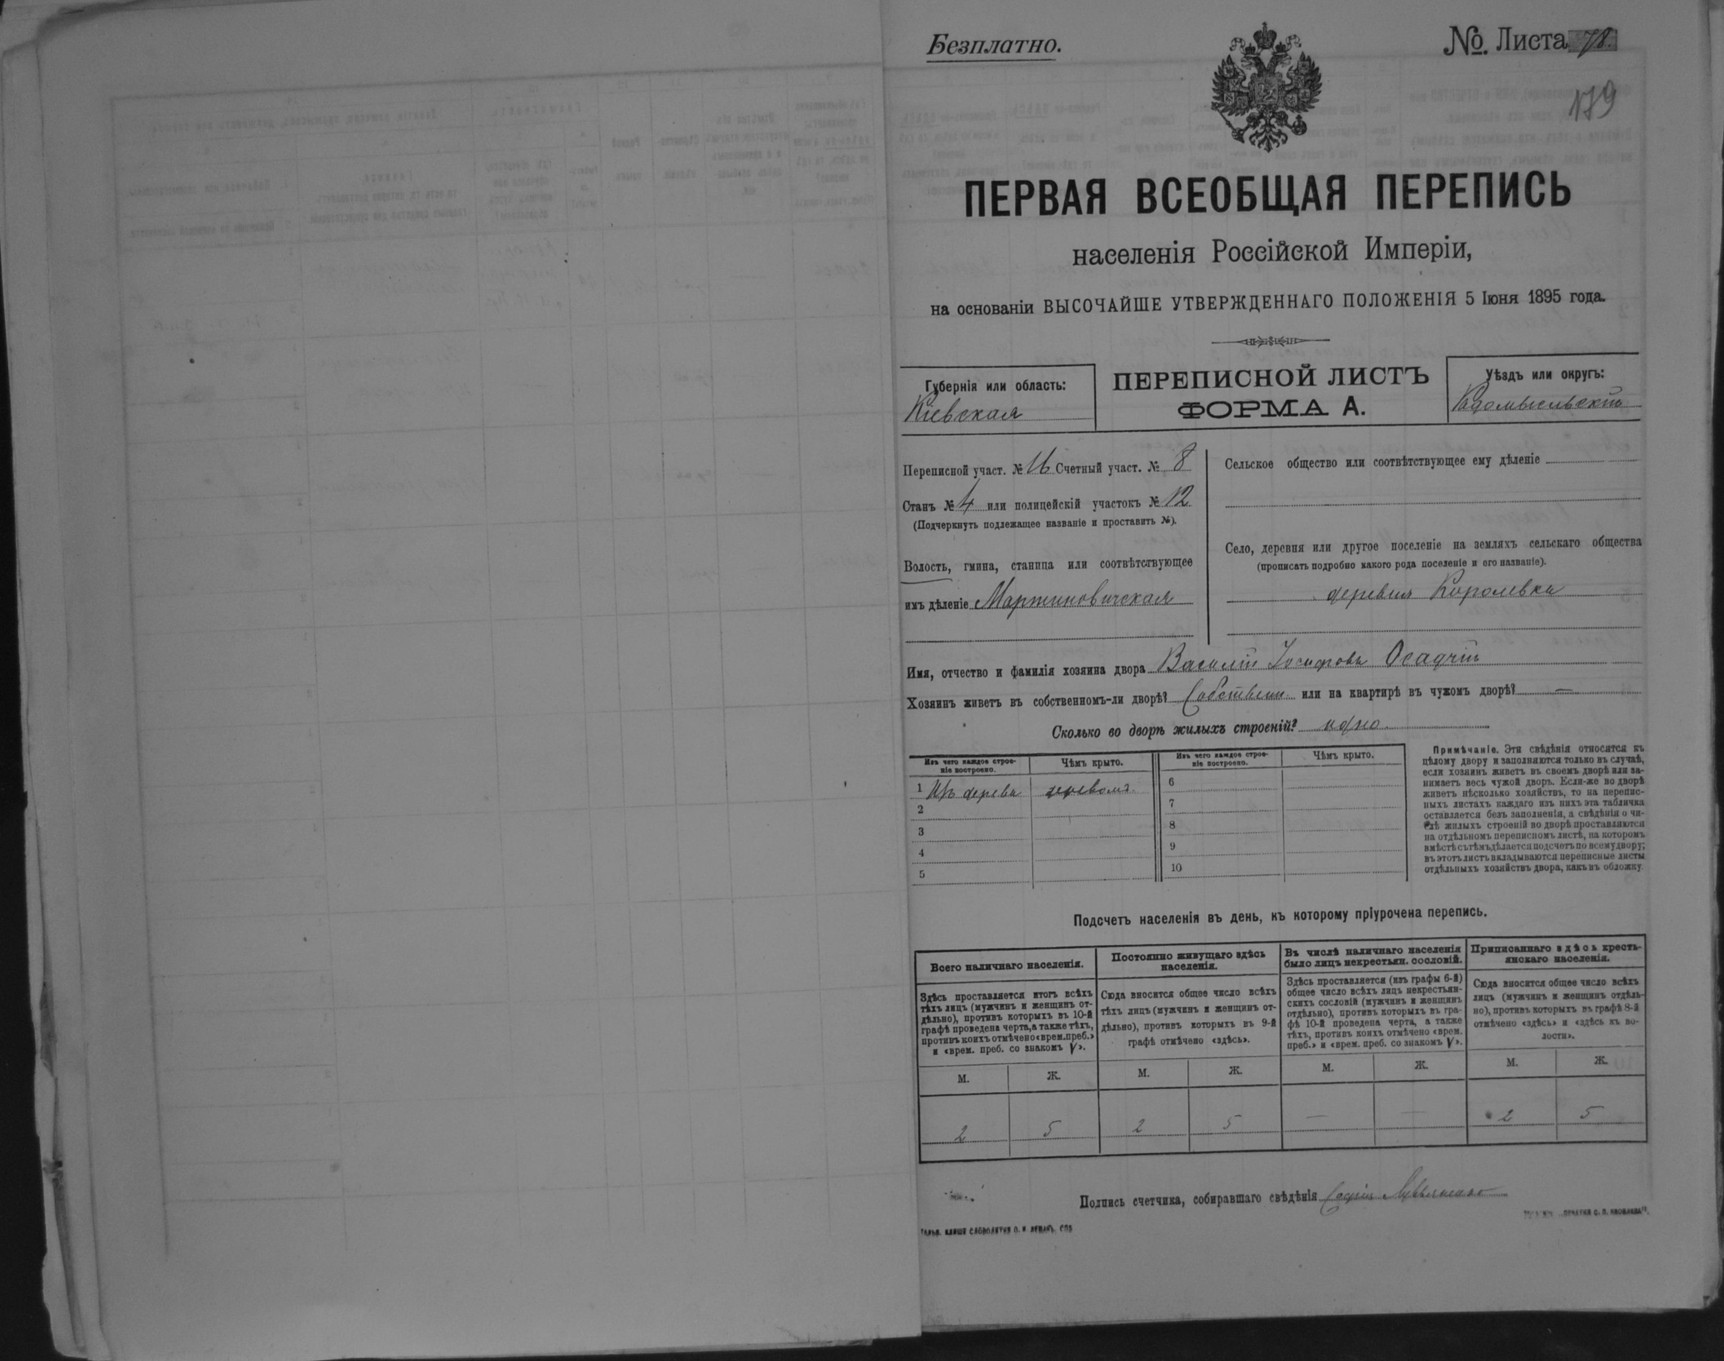 Безплатно.
№. Листа 78.
179
ПЕРВАЯ ВСЕОБЩАЯ ПЕРЕПИСЬ
населенія Россійской Имперіи,
на основаніи ВЫСОЧАЙШЕ УТВЕРЖДЕННАГО ПОЛОЖЕНІЯ 5 Іюня 1895 года.
Губернія или область:
Кіевская
ПЕРЕПИСНОЙ ЛИСТЪ
ФОРМА А.
Уѣздъ или округъ:
Радомысльскій
Переписной участ. № 16 Счетный участ. № 8
Станъ № 4 или полицейскій участокъ № 12
(Подчеркнуть подлежащее названіе и проставить №).
Волость, гмина, станица или соотвѣтствующее
имъ дѣленіе Мартиновичская
Сельское общество или соотвѣтствующее ему дѣленіе
Село, деревня или другое поселеніе на земляхъ сельскаго общества
(прописать подробно какого рода поселеніе и его названіе).
деревня Королевка
Имя, отчество и фамилія хозяина двора Василій Іосифовъ Осадчій
Хозяинъ живетъ въ собственномъ-ли дворѣ? Собствен или на квартирѣ въ чужомъ дворѣ? —
Сколько во дворѣ жилыхъ строеній? одно
Изъ чего каждое строе-
ніе построено.
Чѣмъ крыто.
1 Изъ дерева деревомъ
2
3
4
5
Изъ чего каждое строе-
ніе построено.
Чѣмъ крыто.
6
7
8
9
10
Примѣчаніе. Эти свѣдѣнія относятся къ
цѣлому двору и заполняются только въ случаѣ,
если хозяинъ живетъ въ своемъ дворѣ или за-
нимаетъ весь чужой дворъ. Если-же во дворѣ
живетъ нѣсколько хозяйствъ, то на перепис-
ныхъ листахъ каждаго изъ нихъ эта табличка
оставляется безъ заполненія, а свѣдѣнія о чи-
слѣ жилыхъ строеній во дворѣ проставляются
на отдѣльномъ переписномъ листѣ, на которомъ
вмѣстѣ съ тѣмъ дѣлается подсчетъ по всему двору;
въ этотъ листъ вкладываются переписные листы
отдѣльныхъ хозяйствъ двора, какъ въ обложку.
Подсчетъ населенія въ день, къ которому пріурочена перепись.
Всего наличнаго населенія.
Здѣсь проставляется итогъ всѣхъ
тѣхъ лицъ (мужчинъ и женщинъ от-
дѣльно), противъ которыхъ въ 10-й
графѣ проведена черта, а также тѣхъ,
противъ коихъ отмѣчено «врем. преб.»
и «врем. преб. со знакомъ V».
М. Ж.
2 5
Постоянно живущаго здѣсь
населенія.
Сюда вносится общее число всѣхъ
тѣхъ лицъ (мужчинъ и женщинъ от-
дѣльно), противъ которыхъ въ 9-й
графѣ отмѣчено «здѣсь».
М. Ж.
2 5
Въ числѣ наличнаго населенія
было лицъ некрестьян. сословій.
Здѣсь проставляется (изъ графы 6-й)
общее число всѣхъ лицъ некрестьян-
скихъ сословій (мужчинъ и женщинъ
отдѣльно), противъ которыхъ въ гра-
фѣ 10-й проведена черта, а также
тѣхъ, противъ коихъ отмѣчено «врем.
преб.» и «врем. преб. со знакомъ V».
М. Ж.
— —
Приписаннаго здѣсь кресть-
янскаго населенія.
Сюда вносится общее число всѣхъ
лицъ (мужчинъ и женщинъ отдѣль-
но), противъ которыхъ въ графѣ 8-й
отмѣчено «здѣсь» и «здѣсь къ во-
лости».
М. Ж.
2 5
Подпись счетчика, собиравшаго свѣдѣнія